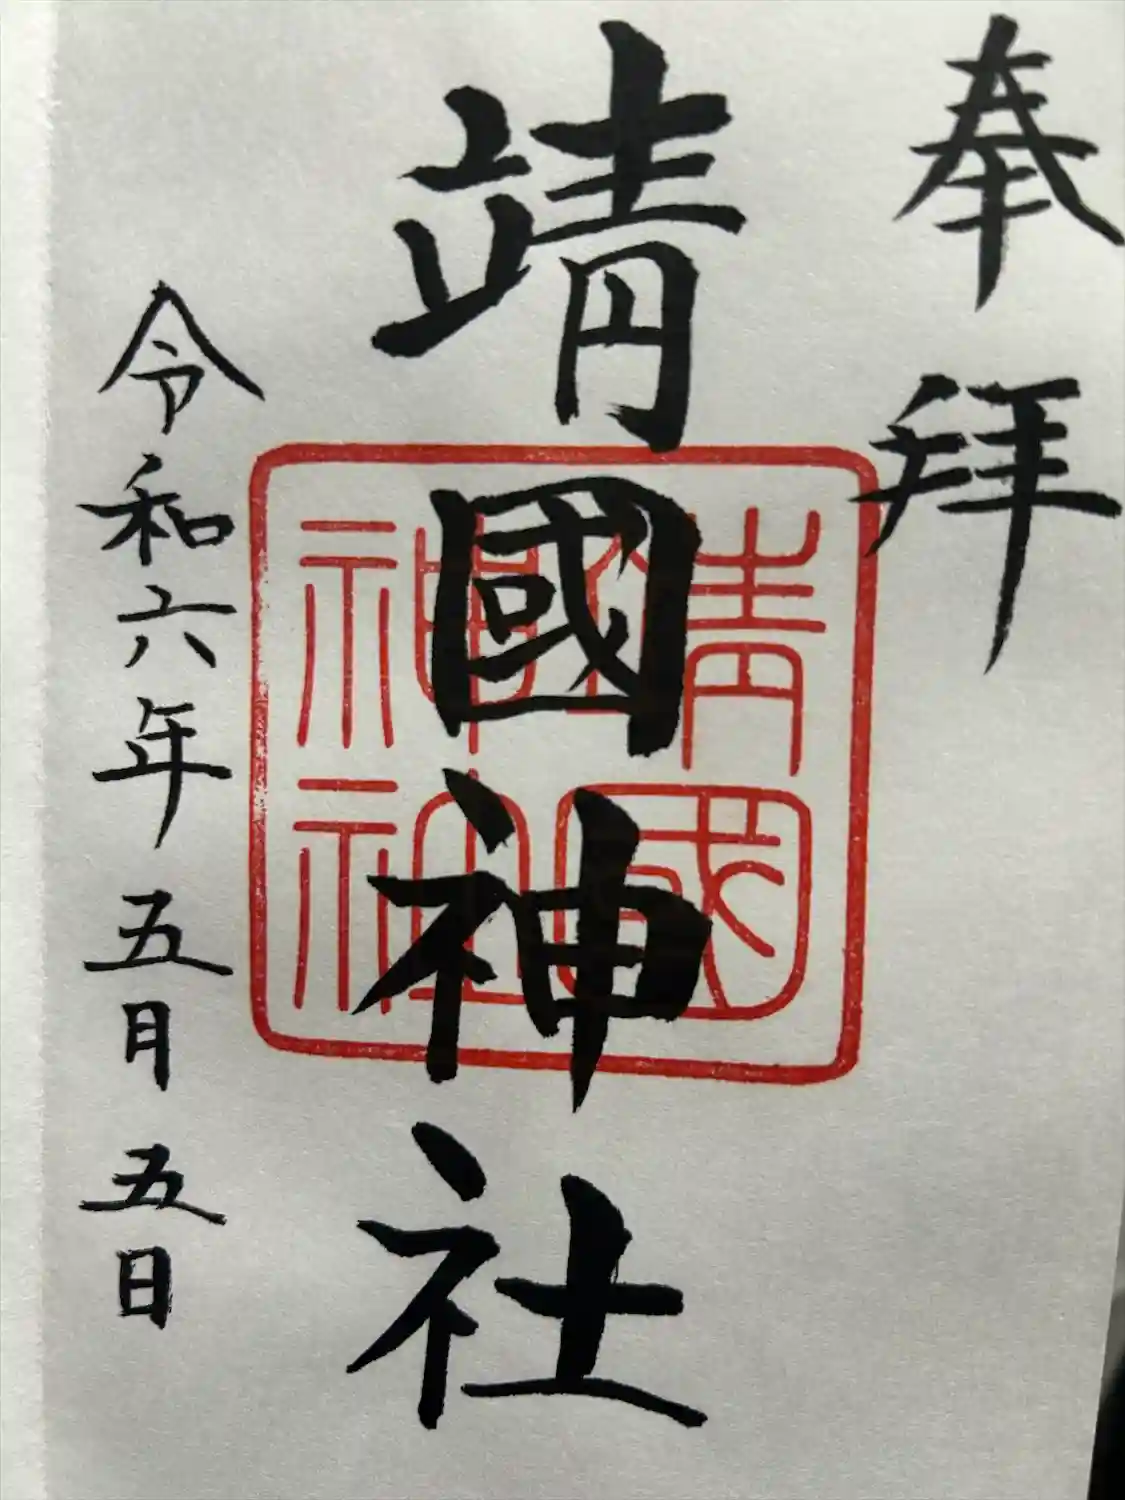 奉拝
靖國神社
靖國
神社
令和六年五月五日